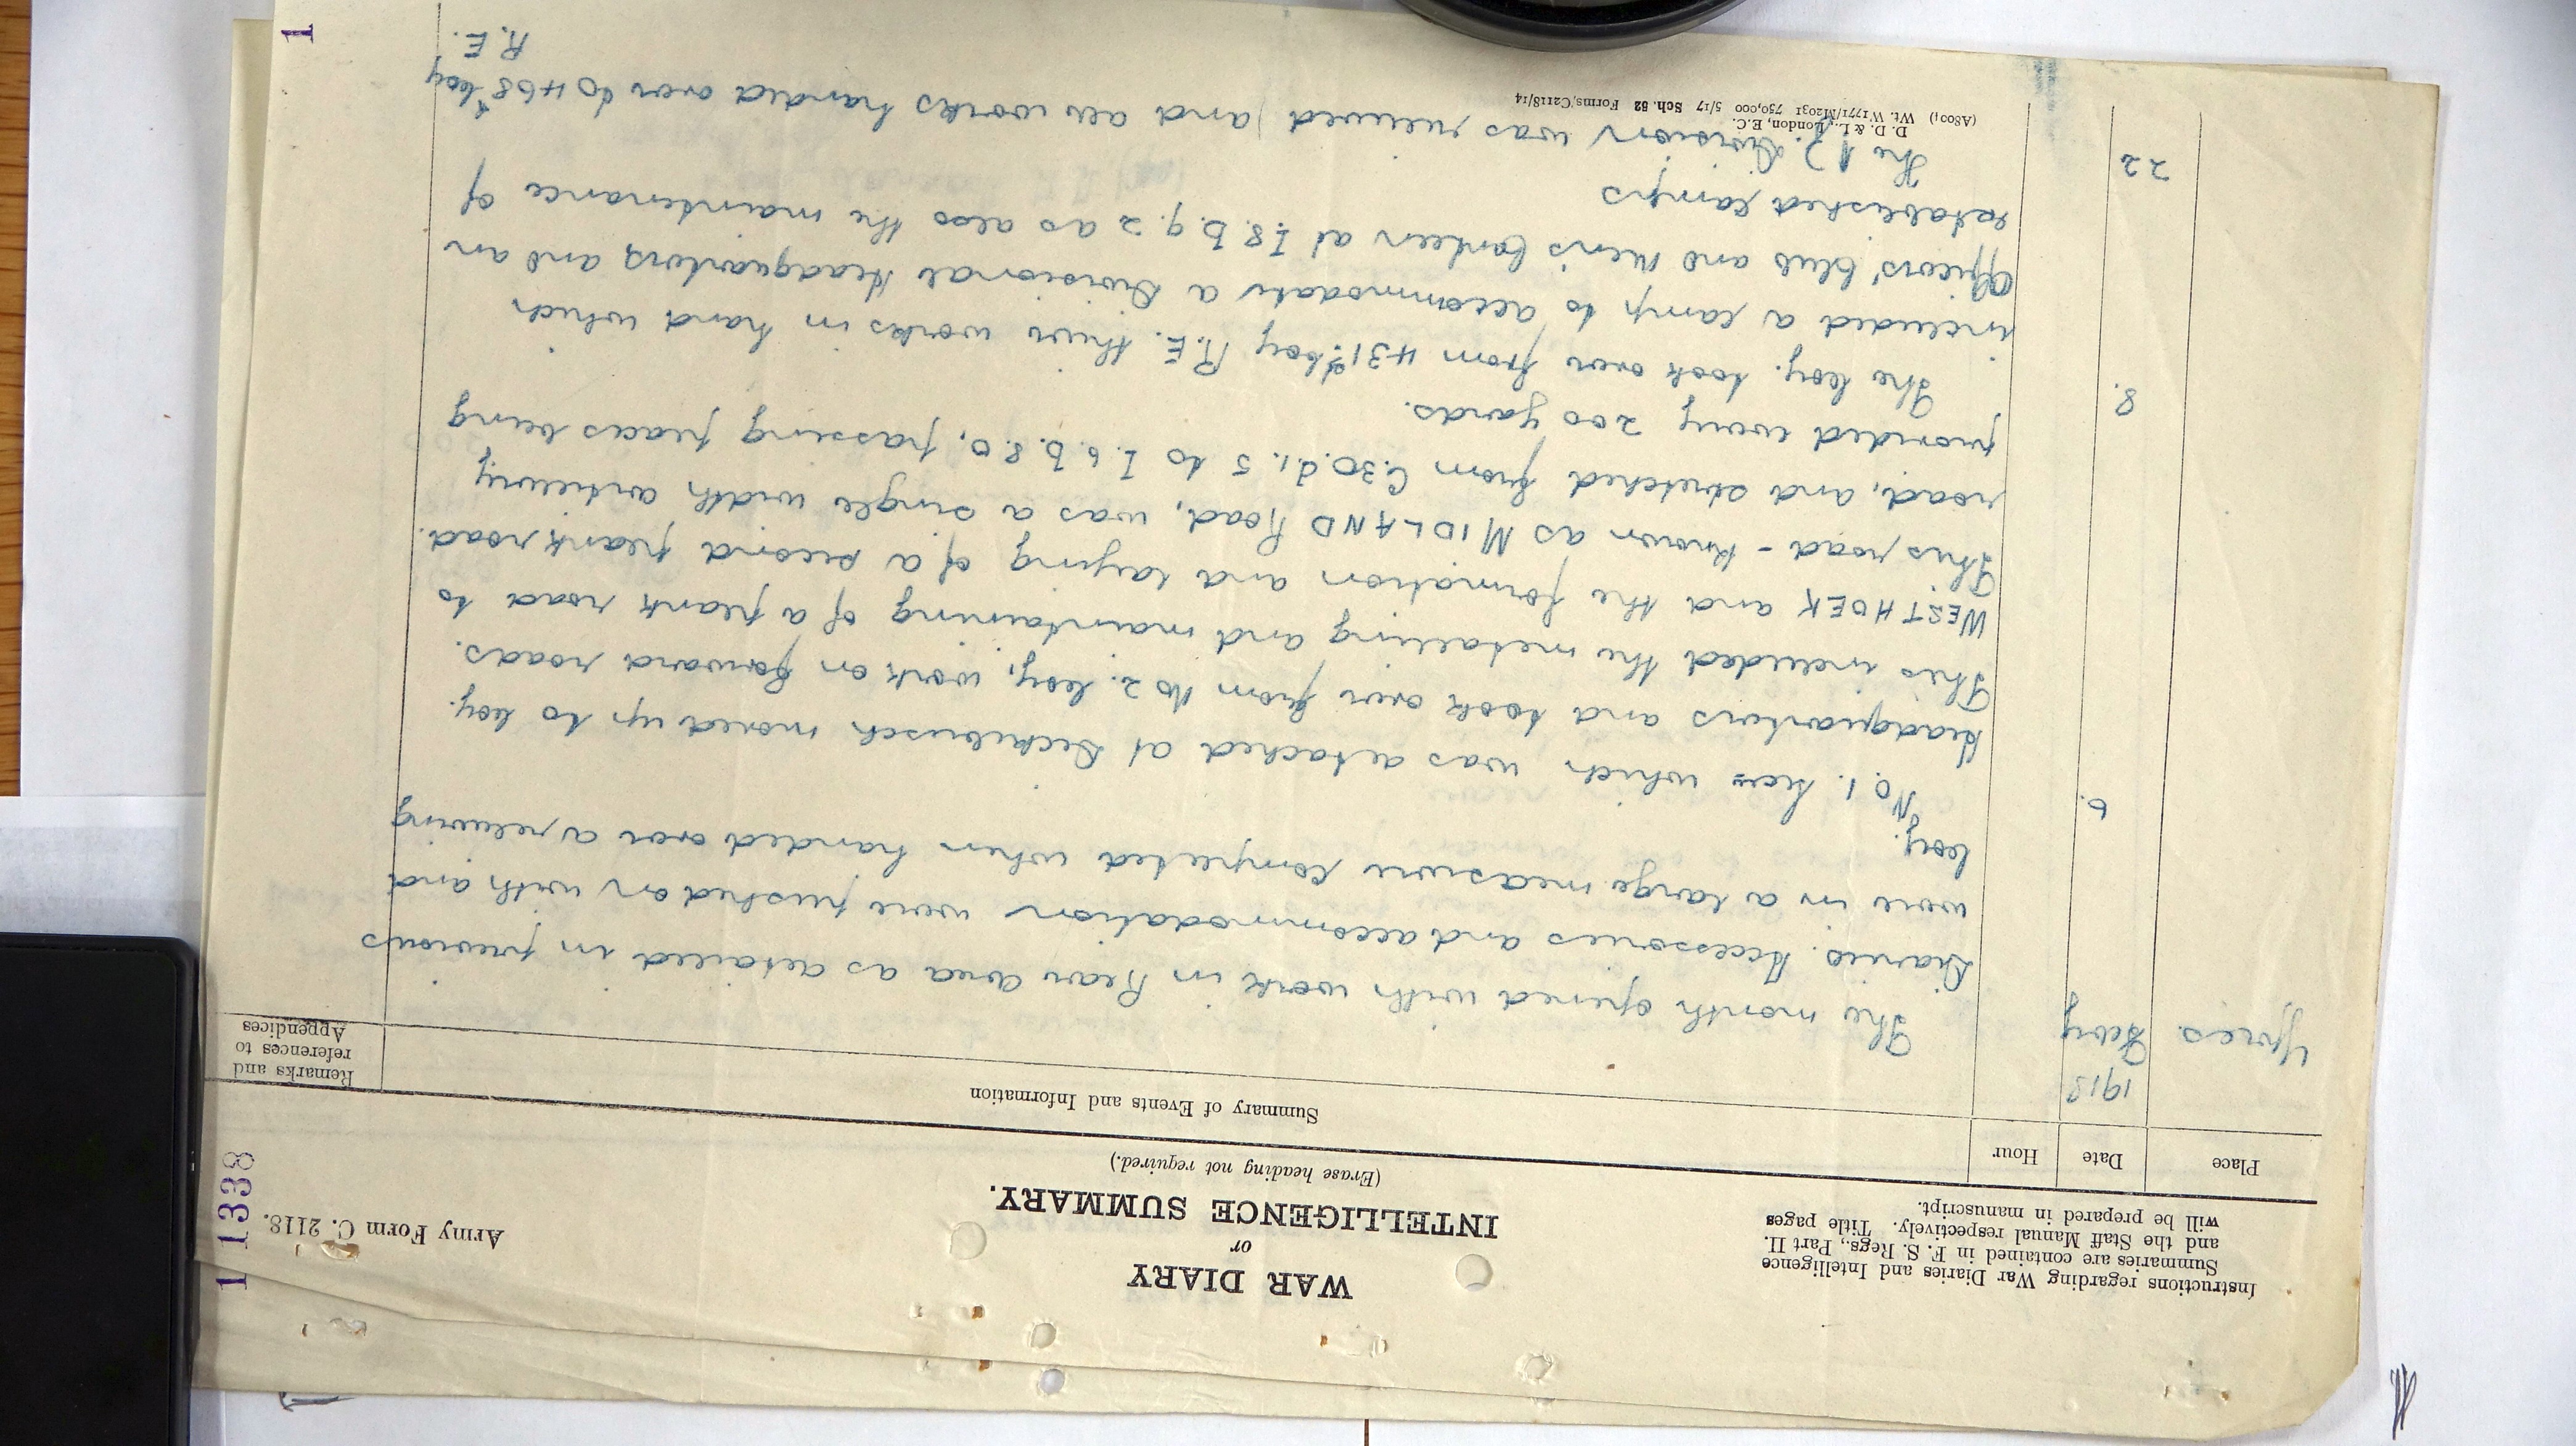 Army Form C. 2118.
WAR DIARY
or
INTELLIGENCE SUMMARY.
(Erase heading not required.)
Instructions regarding War Diaries and Intelligence
Summaries are contained in F. S. Regs., Part II.
and the Staff Manual respectively. Title pages
will be prepared in manuscript.
1 1338
Place
Date
Hour
Summary of Events and Information
Remarks and
references to
Appendices
Ypres.
1918
Feby
The month opened with work in Rear Area as detailed in previous
Diaries. Accessories and accommodation were pushed on with and
were in a large measure completed when handed over a relieving
Coy.
6.
No. 1. Secn which was detached at Dickebusch moved up to Coy.
Headquarters and took over from No 2. Coy, work on forward roads.
This included the metalling and maintaining of a plank road to
WESTHOEK and the formation and laying of a second plank road.
This road - known as MIDLAND Road, was a single width artillery
road, and stretched from C.30.d.1.5 to I.6.b.8.0, passing places being
provided every 200 yards.
8.
The Coy. took over from 431st Coy R.E. their works in hand which
included a camp to accommodate a Divisional Headquarters and an
Officers' Club and Men's Canteen at I.8.b.9.2 as also the maintenance of
established camps
22
The Division was relieved and all works handed over to 468th Coy
R.E.
(A8001) Wt. W1771/M2031 750,000 5/17 Sch. 52 Forms/C2118/14
D. D. & L., London, E.C.
1